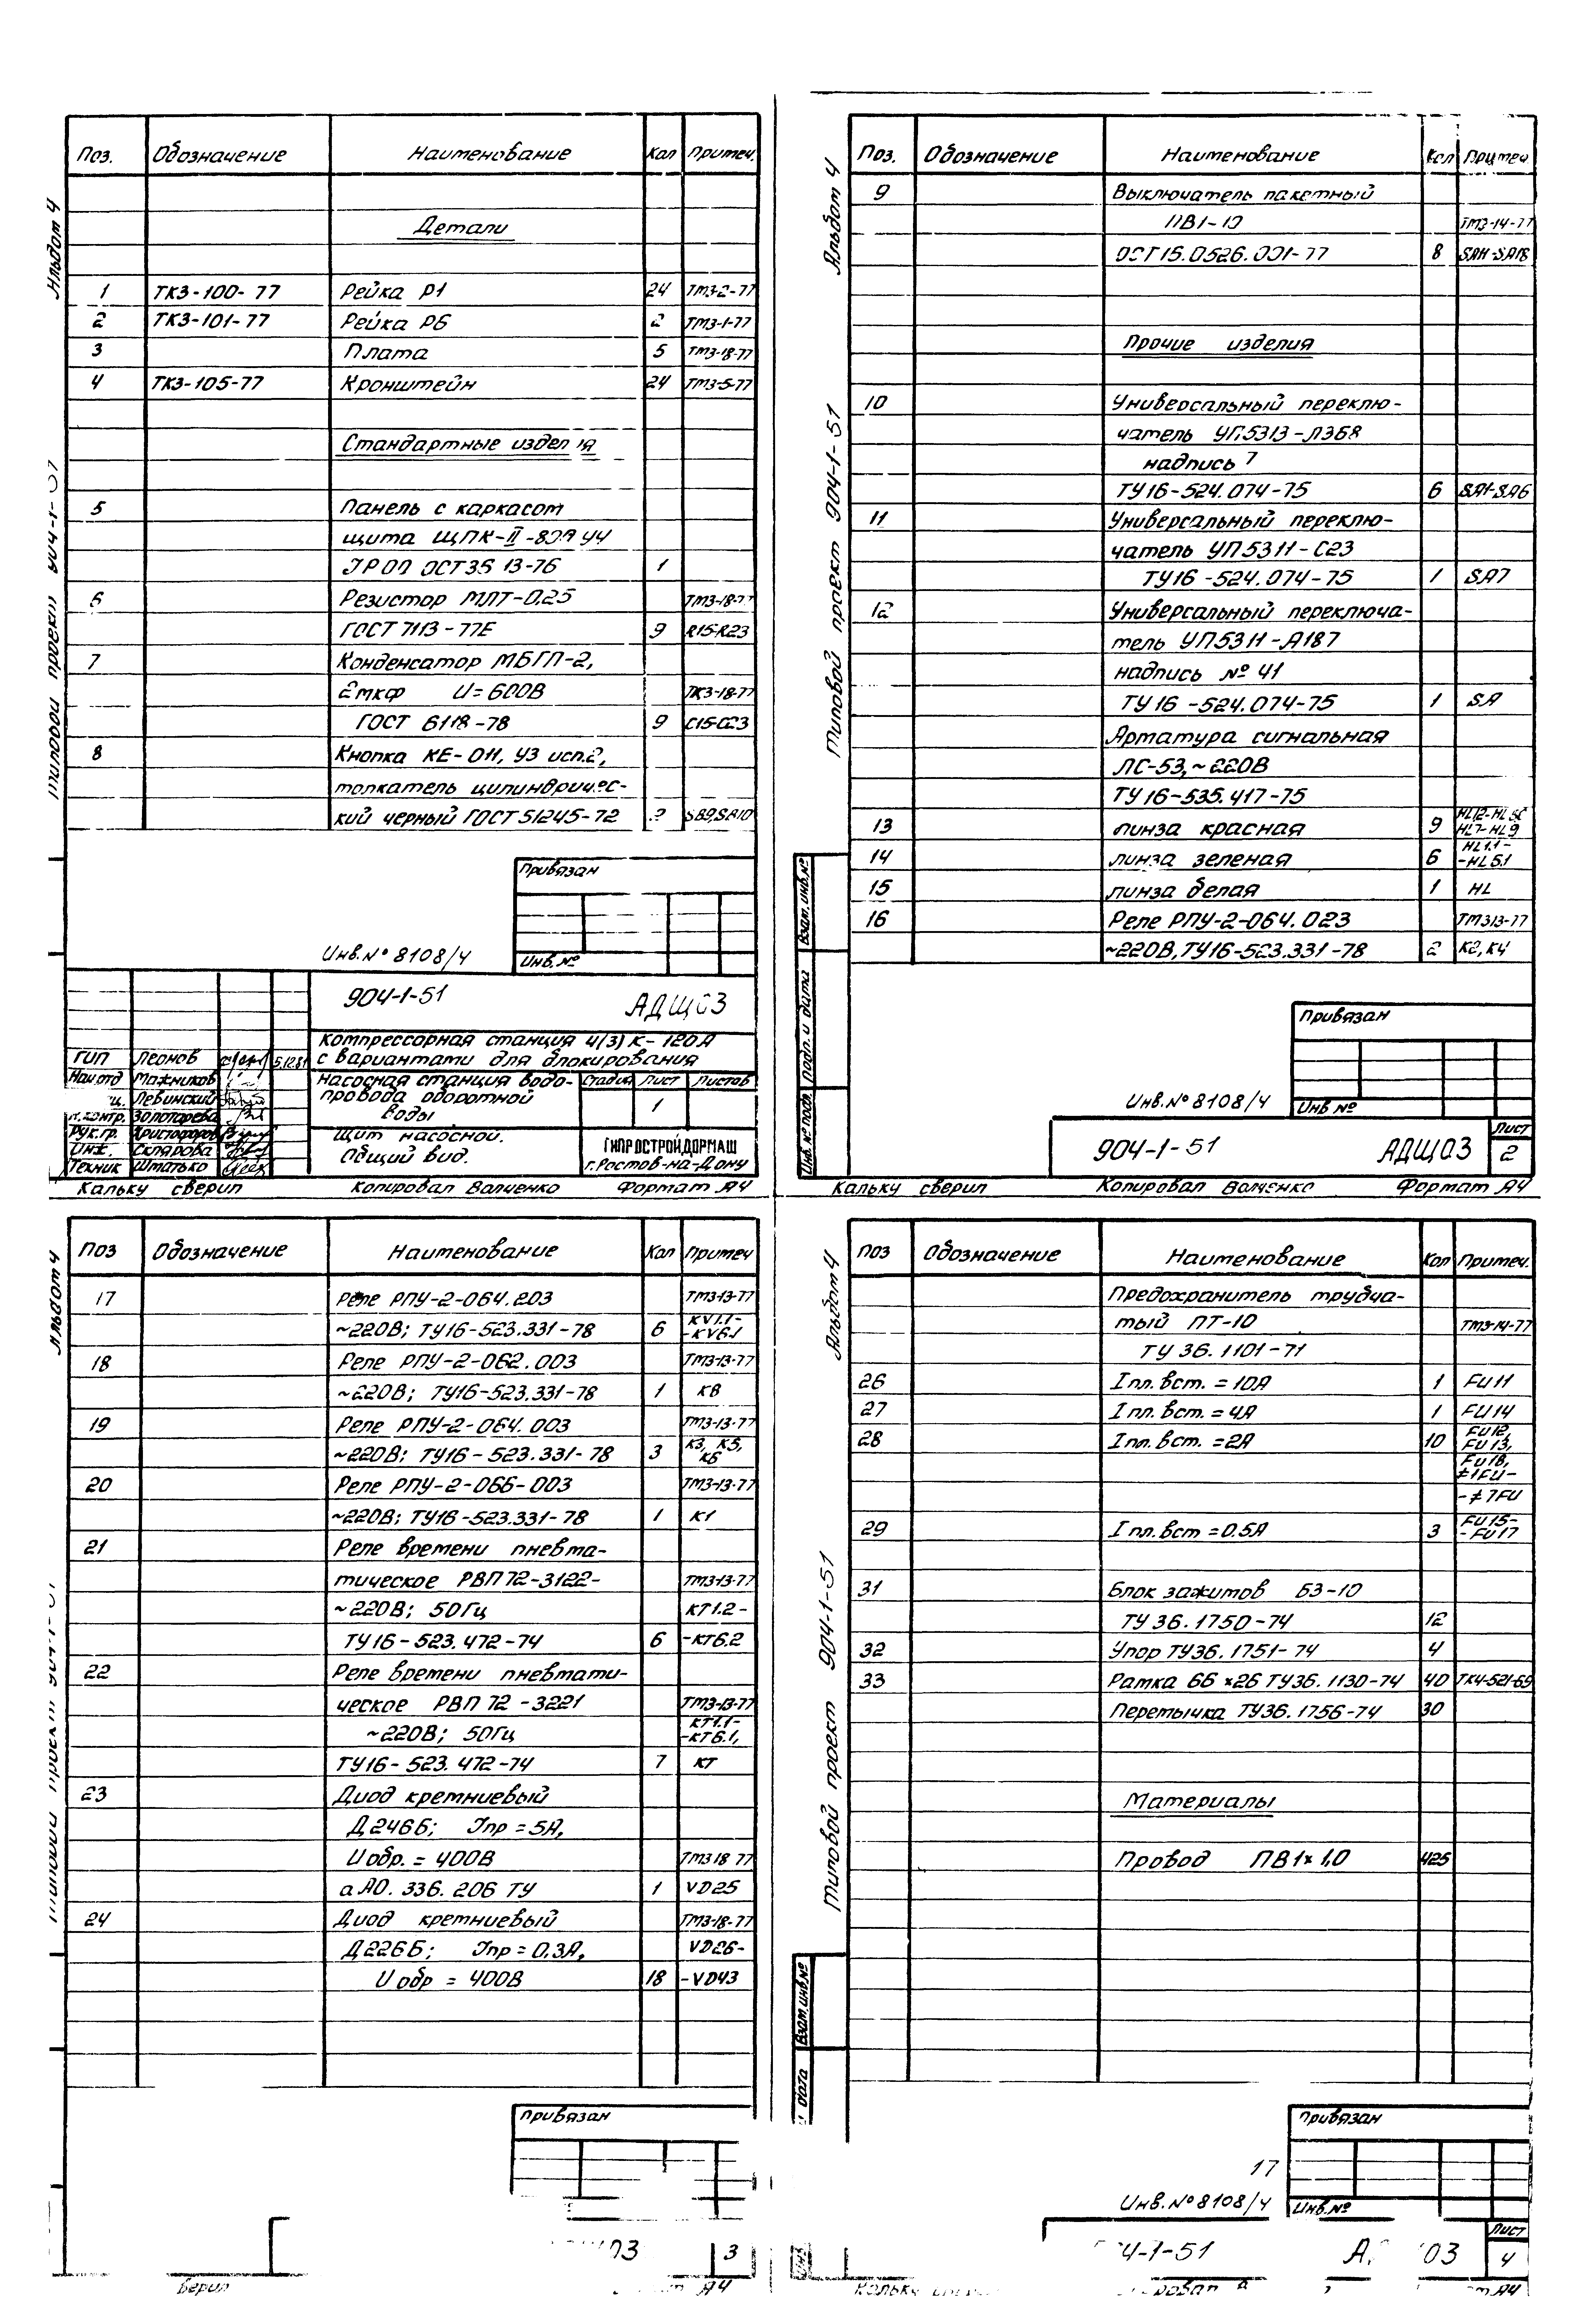 Альбом 4
Типовой проект 904-1-51
Поз. Обозначение Наименование Кол Примеч.
Детали
1 ТК3-100-77 Рейка Р1 24 ТМ3-2-77
2 ТК3-101-77 Рейка Р6 2 ТМ3-1-77
3 Плата 5 ТМ3-18-77
4 ТК3-105-77 Кронштейн 24 ТМ3-5-77
Стандартные изделия
5 Панель с каркасом
щита ЩПК-II-800 У4
IР00 ОСТ36 13-76 1
6 Резистор МЛТ-0,25 ТМ3-18-77
ГОСТ 7113-77Е 9 R15-R23
7 Конденсатор МБГП-2,
2мкф U=600В ТК3-18-77
ГОСТ 6118-78 9 С15-С23
8 Кнопка КЕ-011, У3 исп.2,
толкатель цилиндричес-
кий черный ГОСТ 51245-72 2 SB9,SB10
Привязан
Инв.№ 8108/4 Инв.№
904-1-51 АДЩ03
Компрессорная станция 4(3)К-120А
с вариантами для блокирования
ГИП Леонов 5.12.81
Нач.отд Мажников
Левинский
Н.контр. Золотарева
Рук.гр. Христофоров
Инж. Склярова
Техник Шматько
Насосная станция водо-
провода оборотной
воды
Стадия Лист Листов
1
Щит насосной.
Общий вид.
ГИПРОСТРОЙДОРМАШ
г.Ростов-на-Дону
Кальку сверил Копировал Волченко Формат А4
Альбом 4
Типовой проект 904-1-51
Поз. Обозначение Наименование Кол Примеч
9 Выключатель пакетный
ПВ1-10 ТМ3-14-77
ОСТ16.0526.001-77 8 SA11-SA18
Прочие изделия
10 Универсальный переклю-
чатель УП5313-Л368
надпись 7
ТУ16-524.074-75 6 SA1-SA6
11 Универсальный переклю-
чатель УП5311-С23
ТУ16-524.074-75 1 SA7
12 Универсальный переключа-
тель УП5311-А187
надпись № 41
ТУ16-524.074-75 1 SA
Арматура сигнальная
ЛС-53,~220В
ТУ16-535.417-75
13 линза красная 9 HL7-HL9
14 линза зеленая 6 HL1.1-
-HL6.1
15 линза белая 1 HL
16 Реле РПУ-2-064.023 ТМ313-77
~220В,ТУ16-523.331-78 2 К2,К4
Взам.инв.№
Подп. и дата
Инв.№ подл.
Привязан
Инв.№ 8108/4 Инв №
904-1-51 АДЩ03 Лист
2
Кальку сверил Копировал Волченко Формат А4
Альбом 4
Типовой проект 904-1-51
Поз Обозначение Наименование Кол Примеч
17 Реле РПУ-2-064.203 ТМ3-13-77
~220В; ТУ16-523.331-78 6 KV1.1-
-KV6.1
18 Реле РПУ-2-062.003 ТМ3-13-77
~220В; ТУ16-523.331-78 1 К8
19 Реле РПУ-2-064.003 ТМ3-13-77
~220В; ТУ16-523.331-78 3 К3, К5,
К6
20 Реле РПУ-2-066-003 ТМ3-13-77
~220В; ТУ16-523.331-78 1 К1
21 Реле времени пневма-
тическое РВП72-3122- ТМ3-13-77
~220В; 50Гц КТ1.2-
ТУ16-523.472-74 6 -КТ6.2
22 Реле времени пневмати-
ческое РВП72-3221 ТМ3-13-77
~220В; 50Гц КТ1.1-
-КТ6.1,
ТУ16-523.472-74 7 КТ
23 Диод кремниевый
Д246Б; Iпр=5А,
Uобр.=400В ТМ3 18 77
аАО.336.206 ТУ 1 VD25
24 Диод кремниевый ТМ3-18-77
Д226Б; Iпр=0,3А, VD26-
Uобр=400В 18 -VD43
Привязан
03 3
А4
Альбом 4
Типовой проект 904-1-51
Поз Обозначение Наименование Кол Примеч.
Предохранитель трубча-
тый ПТ-10 ТМ3-14-77
ТУ 36.1101-71
26 Iпл.вст.=10А 1 FU11
27 Iпл.вст.=4А 1 FU14
28 Iпл.вст.=2А 10 FU12,
FU13,
FU18,
≠1FU-
-≠7FU
29 Iпл.вст=0.5А 3 FU15-
-FU17
31 Блок зажимов БЗ-10
ТУ36.1750-74 12
32 Упор ТУ36.1751-74 4
33 Рамка 66×26 ТУ36.1130-74 40 ТК4-521-69
Перемычка ТУ36.1756-74 30
Материалы
Провод ПВ1×1,0 425
Взам.инв.№
дата
Привязан
17
Инв.№ 8108/4 Инв.№
4-1-51 03 Лист
4
Кальку А4